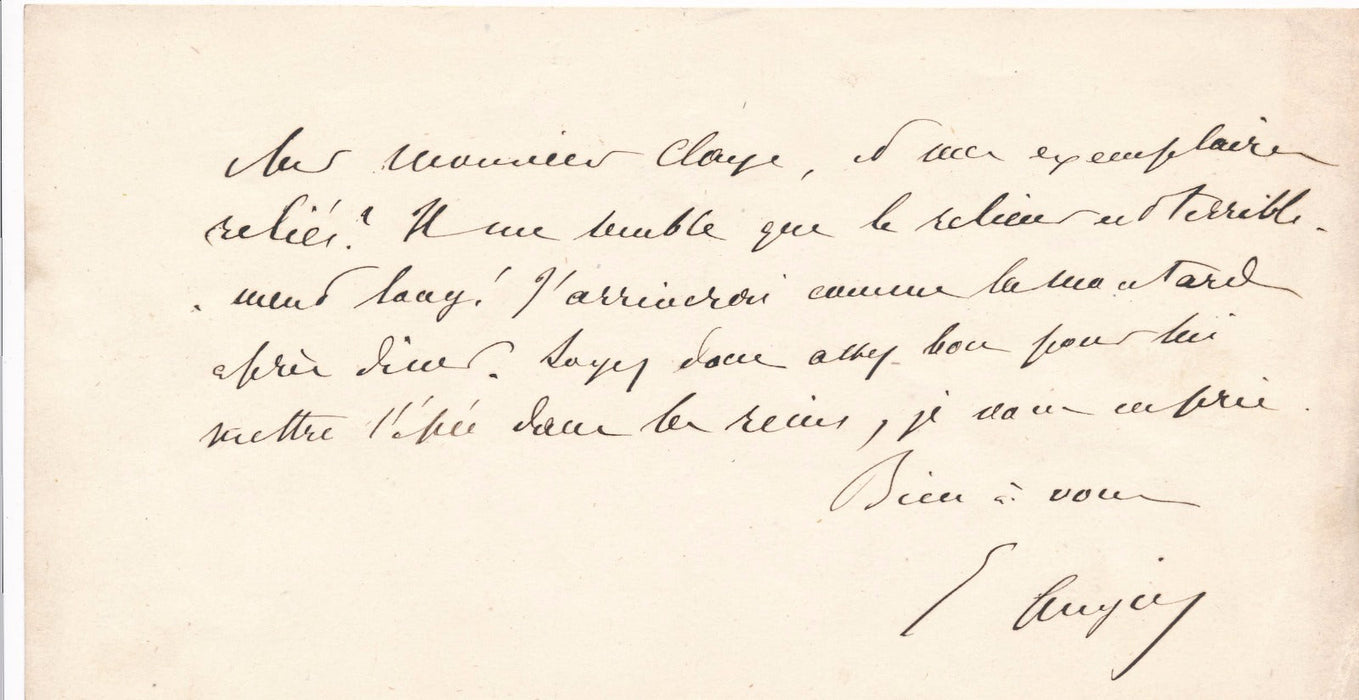 cher monsieur Claye, et mes exemplaires
reliés? Il me semble que le relieur est terrible-
-ment long! J'arriverai comme la moutarde
après diner. Soyez donc assez bon pour lui
mettre l'épée dans les reins, je vous en prie.
Bien à vous
E Augier